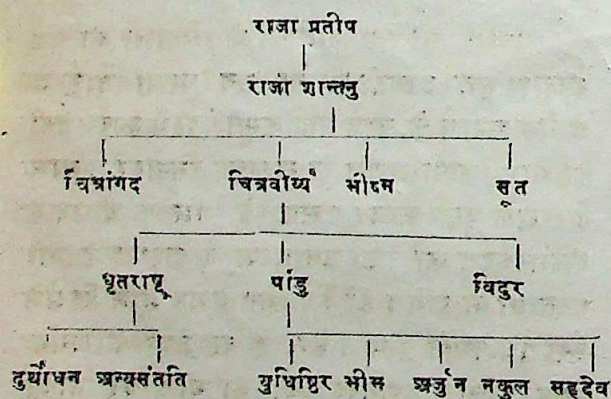 राजा प्रतीप
राजा शान्तनु
चित्रांगद चित्रवीर्य्य भीष्म सूत
धृतराष्ट्र पांडु विदुर
दुर्योधन अन्यसंतति युधिष्ठिर भीम अर्जुन नकुल सहदेव